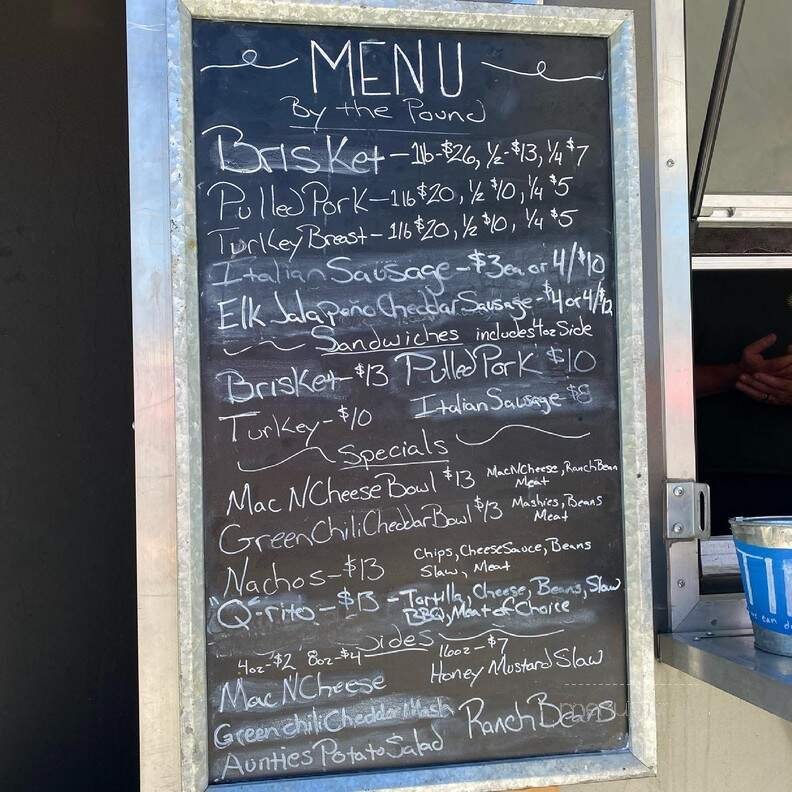 MENU
By the Pound
Brisket - 1lb-$26, ½-$13, ¼ $7
Pulled Pork - 1lb $20, ½ $10, ¼ $5
Turkey Breast - 1lb $20, ½ $10, ¼ $5
Italian Sausage - $3ea or 4/$10
Elk Jalapeño Cheddar Sausage - $4 or 4/$12
Sandwiches includes 4oz Side
Brisket - $13 Pulled Pork $10
Turkey - $10 Italian Sausage - $8
Specials
Mac N Cheese Bowl $13 Mac N Cheese, Ranch Bean
Meat
Green Chili Cheddar Bowl $13 Mashies, Beans
Meat
Nachos - $13 Chips, Cheese Sauce, Beans
Slaw, Meat
"Q"-rito - $13 - Tortilla, Cheese, Beans, Slaw
BBQ, Meat of Choice
Sides
4oz-$2 8oz-$4 16oz-$7
Mac N Cheese Honey Mustard Slaw
Green chili Cheddar Mash Ranch Beans
Aunties Potato Salad